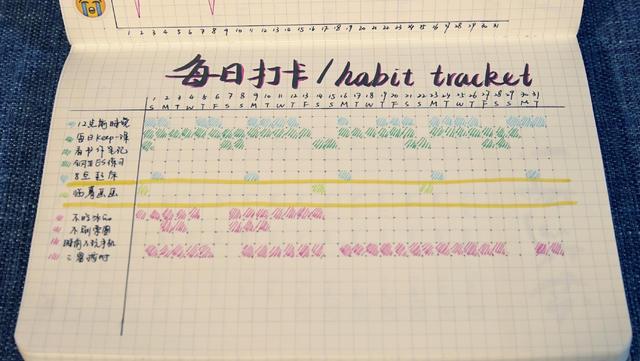 1 2 3 4 5 6 7 8 9 10 11 12 13 14 15 16 17 18 19 20 21 22 23 24 25 26 27 28 29 30 31
每日打卡/habit tracket
1 2 3 4 5 6 7 8 9 10 11 12 13 14 15 16 17 18 19 20 21 22 23 24 25 26 27 28 29 30 31
S M T W T F S S M T W T F S S M T W T F S S M T W T F S S M T
12点前睡觉
每日keep一课
看书作笔记
练习
8点起床
画画
不喝
不刷
睡前不玩手机